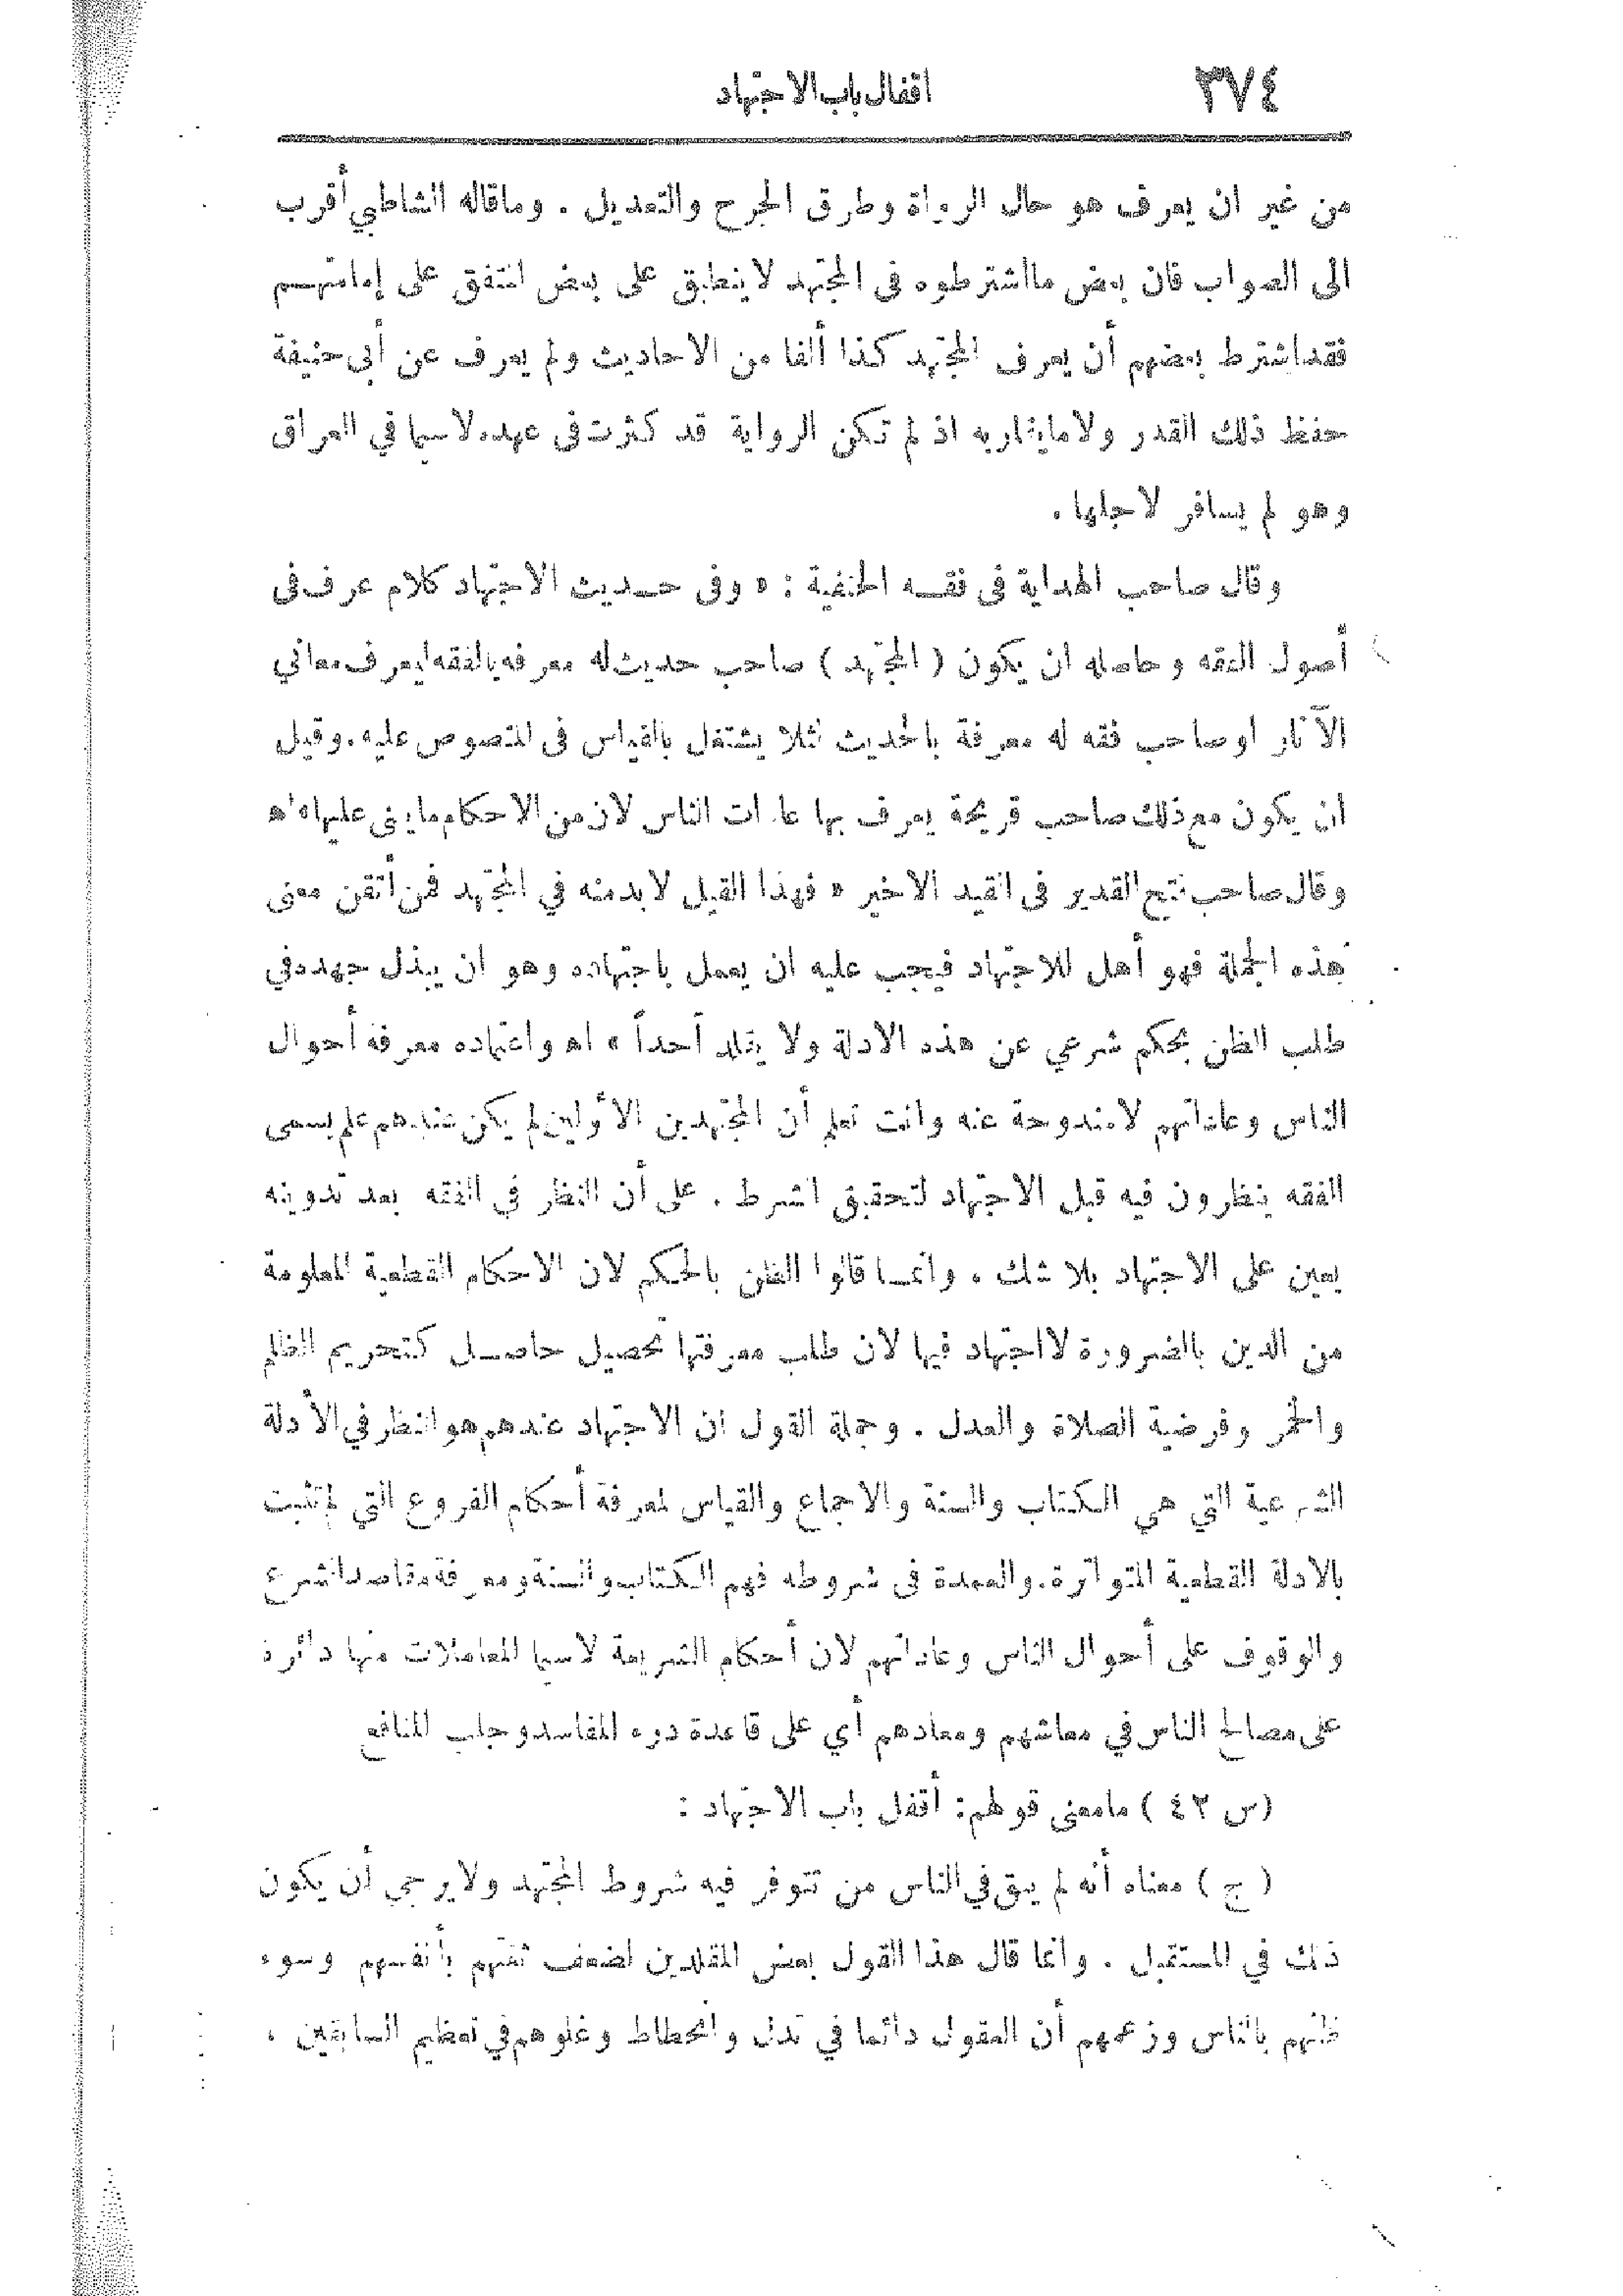 ٣٧٤ اقفال باب الاجتهاد
من غير ان يعرف هو حال الرواة وطرق الجرح والتعديل . وماقاله الشاطبي أقرب
الى الصواب فان بعض مااشترطوه في المجتهد لاينطبق على بعض المتفق على إمامتهم
فقداشترط بعضهم أن يعرف المجتهد كذا ألفا من الاحاديث ولم يعرف عن أبي حنيفة
حفظ ذلك القدر ولا مايقاربه اذ لم تكن الرواية قد كثرت في عهده لاسيما في العراق
وهو لم يسافر لاجلها .
وقال صاحب الهداية في فقه الحنفية : « وفي حديث الاجتهاد كلام عرف في
أصول الفقه وحاصله ان يكون ( المجتهد ) صاحب حديث له معرفه بالفقه ليعرف معاني
الآثار او صاحب فقه له معرفة بالحديث لئلا يشتغل بالقياس في المنصوص عليه . وقيل
ان يكون مع ذلك صاحب قريحة يعرف بها عادات الناس لان من الاحكام مايبنى عليها » اه
وقال صاحب فتح القدير في القيد الاخير « فهذا القيل لا بد منه في المجتهد فمن أتقن معنى
هذه الجملة فهو أهل للاجتهاد فيجب عليه ان يعمل باجتهاده وهو ان يبذل جهده في
طلب الظن بحكم شرعي عن هذه الادلة ولا يقلد أحداً » اه واعتماده معرفة أحوال
الناس وعاداتهم لا مندوحة عنه وانت تعلم أن المجتهدين الأولين لم يكن عندهم علم يسمى
الفقه ينظرون فيه قبل الاجتهاد لتحقيق الشرط . على أن النظر في الفقه بعد تدوينه
يعين على الاجتهاد بلا شك . وانما قالوا الظن بالحكم لان الاحكام القطعية المعلومة
من الدين بالضرورة لااجتهاد فيها لان طلب معرفتها تحصيل حاصل كتحريم الظلم
والخمر وفرضية الصلاة والعدل . وجملة القول ان الاجتهاد عندهم هو النظر في الأدلة
الشرعية التي هي الكتاب والسنة والاجماع والقياس لمعرفة أحكام الفروع التي لم تثبت
بالادلة القطعية المتواترة . والعمدة في شروطه فهم الكتاب والسنة ومعرفة مقاصد الشرع
والوقوف على أحوال الناس وعاداتهم لان أحكام الشريعة لاسيما المعاملات منها دائرة
على مصالح الناس في معاشهم ومعادهم أي على قاعدة درء المفاسد وجلب المنافع
(س ٤٢ ) مامعنى قولهم: أقفل باب الاجتهاد :
( ج ) معناه أنه لم يبق في الناس من تتوفر فيه شروط المجتهد ولا يرجى أن يكون
ذلك في المستقبل . وانما قال هذا القول بعض المقلدين لضعف ثقتهم بأنفسهم وسوء
ظنهم بالناس وزعمهم أن العقول دائما في تدل وانحطاط وغلوهم في تعظيم السابقين .